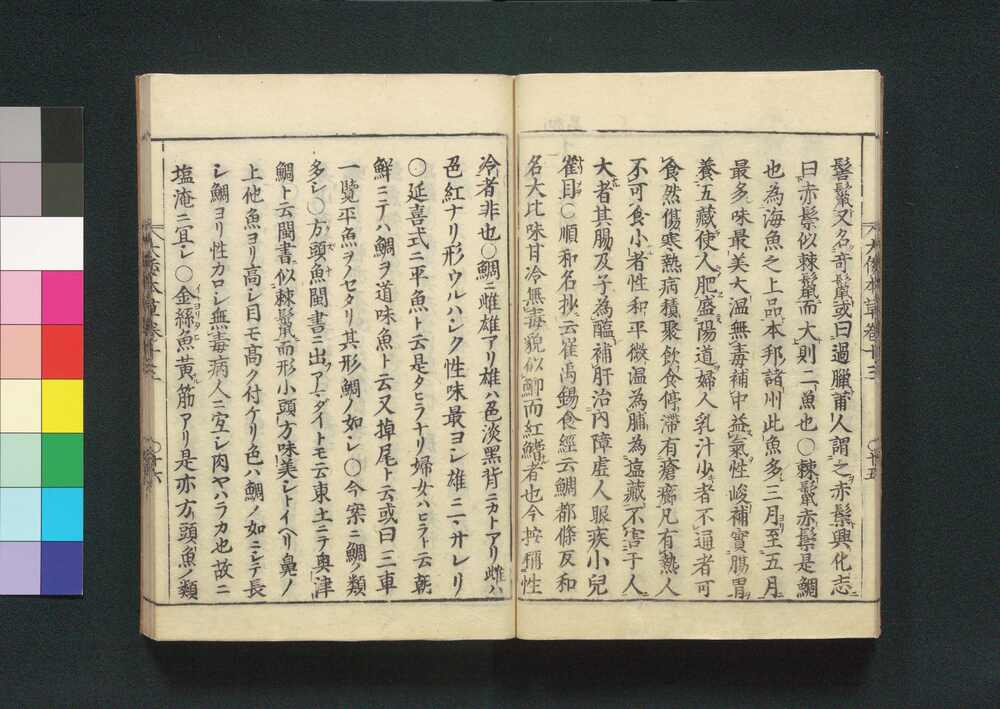 鬐鬣又名奇鬣或曰過臘莆人謂之赤鬃興化志
曰赤鬃似棘鬣而大則二魚也○棘鬣赤鬃是鯛
也為海魚之上品本邦諸州此魚多三月至五月
最多味最美大温無毒補中益氣性峻補實腸胃
養五藏使人肥盛陽道婦人乳汁少者不通者可
食然傷寒熱病積聚飲食停滯有瘡瘍凡有熱人
不可食小者性和平微温為脯為塩藏不害于人
大者其腸及子為醢補肝治內障虚人眼疾小兒
雀目○順和名抄云崔禹錫食經云鯛都條反和
名大比味甘冷無毒貌似鯽而紅鰭者也今按稱性
大倭本草卷十三
十五
冷者非也○鯛ニ雌雄アリ雄ハ色淡黒背ニカトアリ雌ハ
色紅ナリ形ウルハシク性味最ヨシ雄ニマサレリ
○延喜式ニ平魚ト云是タヒラナリ婦女ハヒラト云朝
鮮ニテハ鯛ヲ道味魚ト云又掉尾ト云或曰三車
一覽平魚ヲノセタリ其形鯛ノ如シ○今案ニ鯛ノ類
多シ○方頭魚閩書ニ出アマダイトモ云東土ニテ奥津
鯛ト云閩書似棘鬣而形小頭方味美シトイヘリ鼻ノ
上他魚ヨリ高シ目モ高ク付ケリ色ハ鯛ノ如ニシテ長
シ鯛ヨリ性カロシ無毒病人ニ宜シ肉ヤハラカ也故ニ
塩淹ニ宜シ○金絲魚黄筋アリ是亦方頭魚ノ類
大倭本草卷十三
十六